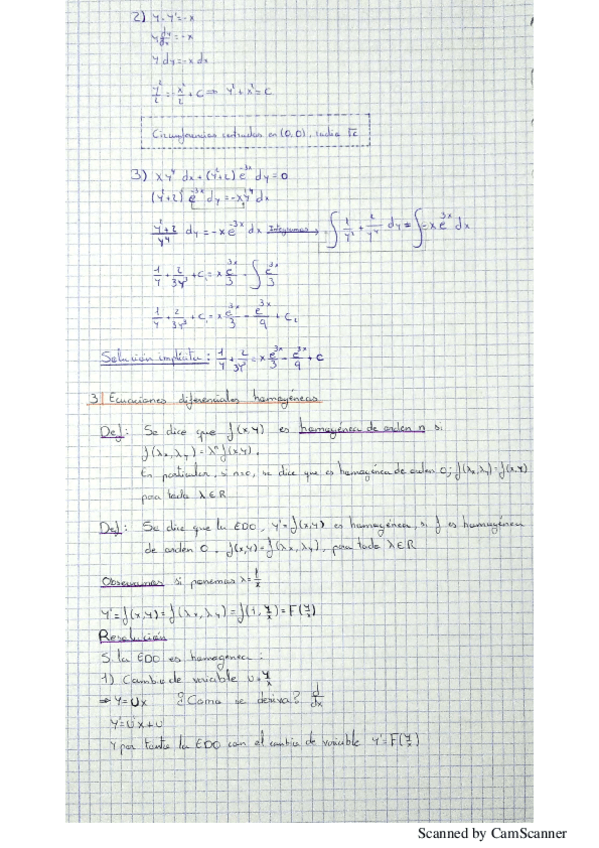 2) y·y'=-x
y dy/dx = -x
y dy = -x dx
y²/2 = -x²/2 + C ⇒ y²+x²=C
Circunferencias centradas en (0,0), radio √c
3) xy⁴ dx + (y²+2) e^-3x dy = 0
(y²+2) e^-3x dy = -xy⁴ dx
y²+2/y⁴ dy = -x e^3x dx Integramos → ∫ 1/y² + 2/y⁴ dy = ∫ -x e^3x dx
1/y + 2/3y³ + C₁ = x e^3x/3 - ∫ e^3x/3
1/y + 2/3y³ + C₁ = x e^3x/3 - e^3x/9 + C₂
Solución implícita: 1/y + 2/3y³ = x e^3x/3 - e^3x/9 + C
3| Ecuaciones diferenciales homogéneas
Def: Se dice que f(x,y) es homogénea de orden n si
f(λx,λy)=λⁿf(x,y).
En particular, si n=0, se dice que es homogénea de orden 0; f(λx,λy)=f(x,y)
para todo λ∈R
Def: Se dice que la EDO, y'=f(x,y) es homogénea, si f es homogénea
de orden 0. f(x,y)=f(λx,λy), para todo λ∈R
Observamos si ponemos λ=1/x
y'=f(x,y)=f(λx,λy)=f(1,y/x)=F(y/x)
Resolución
Si la EDO es homogénea:
1) Cambio de variable u=y/x
⇒ y=ux ¿Como se deriva? d/dx
y'=u'x+u
Y por tanto la EDO con el cambio de variable y'=F(y/x)
Scanned by CamScanner